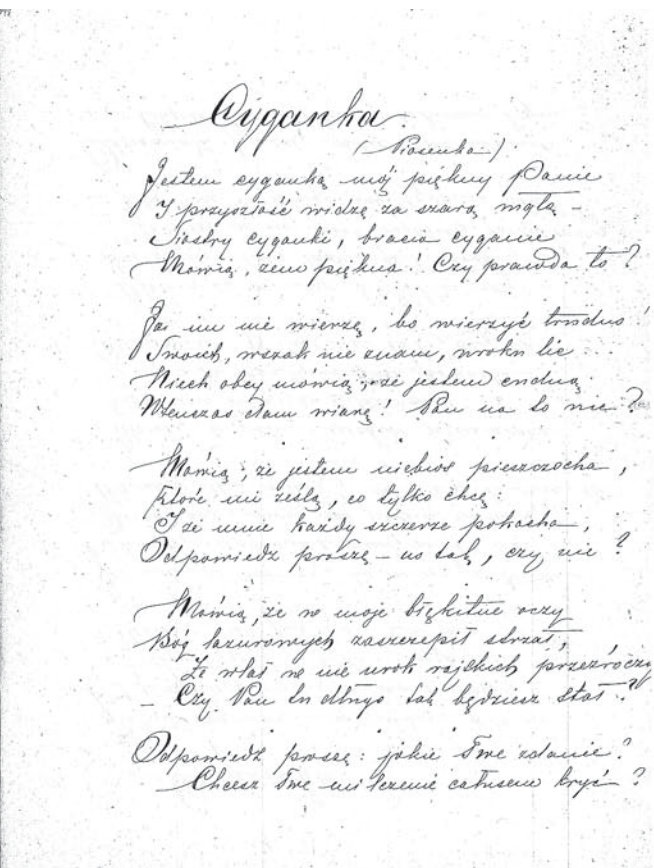 Cyganka
(Piosenka)
Jestem cyganką mój piękny Panie
I przyszłość widzę za szarą mgłą –
Siostry cyganki, bracia cyganie
Mówią, żem piękna! Czy prawda to?
Ja im nie wierzę, bo wierzyć trudno!
Swoich, wszak nie znam, uroku lic...
Niech obcy mówią, że jestem cudną
Wtenczas dam wiarę! Pan na to nic?
Mówią, że jestem niebios pieszczocha,
Które mi ześlą, co tylko chcę:
I że mnie każdy szczerze pokocha,
Odpowiedz proszę – no tak, czy nie?
Mówią, że w moje błękitne oczy
Bóg lazurowych zaszczepił strzał,
Że wlał we nie urok rajskich przezróczy
– Czy Pan tu długo tak będziesz stał?
Odpowiedz proszę: jakie Twe zdanie?
Chcesz Twe milczenie całusem kryć?